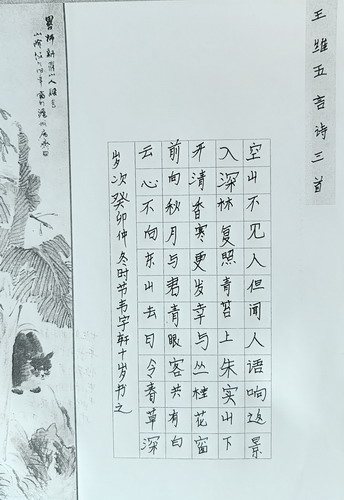 王维五言诗三首
空山不见人但闻人语响返景
入深林复照青苔上朱实山下
开清香寒更发幸与丛桂花窗
前向秋月与君青眼客共有白
云心不向东山去日令春草深
岁次癸卯仲冬时节韦宇轩十岁书之